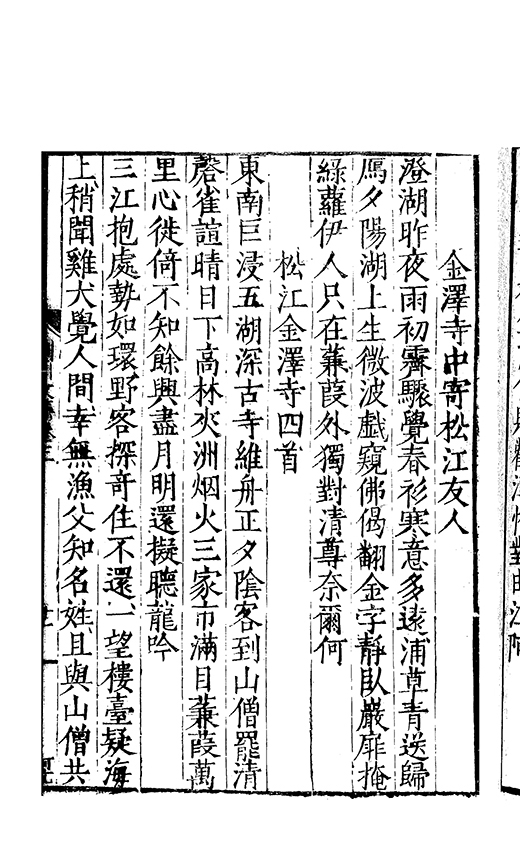 金澤寺中寄松江友人
澄湖昨夜雨初霽驟覺春衫寒意多遠浦草青送歸
鴈夕陽湖上生微波戲窺佛偈翻金字靜臥巖扉掩
綠蘿伊人只在蒹葭外獨對清尊奈爾何
松江金澤寺四首
東南巨浸五湖深古寺維舟正夕陰客到山僧罷清
磬雀諠晴日下高林夾洲烟火三家市滿目蒹葭萬
里心徙倚不知餘興盡月明還擬聽龍吟
三江抱處勢如環野客探奇住不還一望樓臺疑海
上稍聞雞犬覺人間幸無漁父知名姓且與山僧共